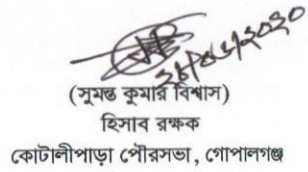 (সুমন্ত কুমার বিশ্বাস)
হিসাব রক্ষক
কোটালীপাড়া পৌরসভা, গোপালগঞ্জ